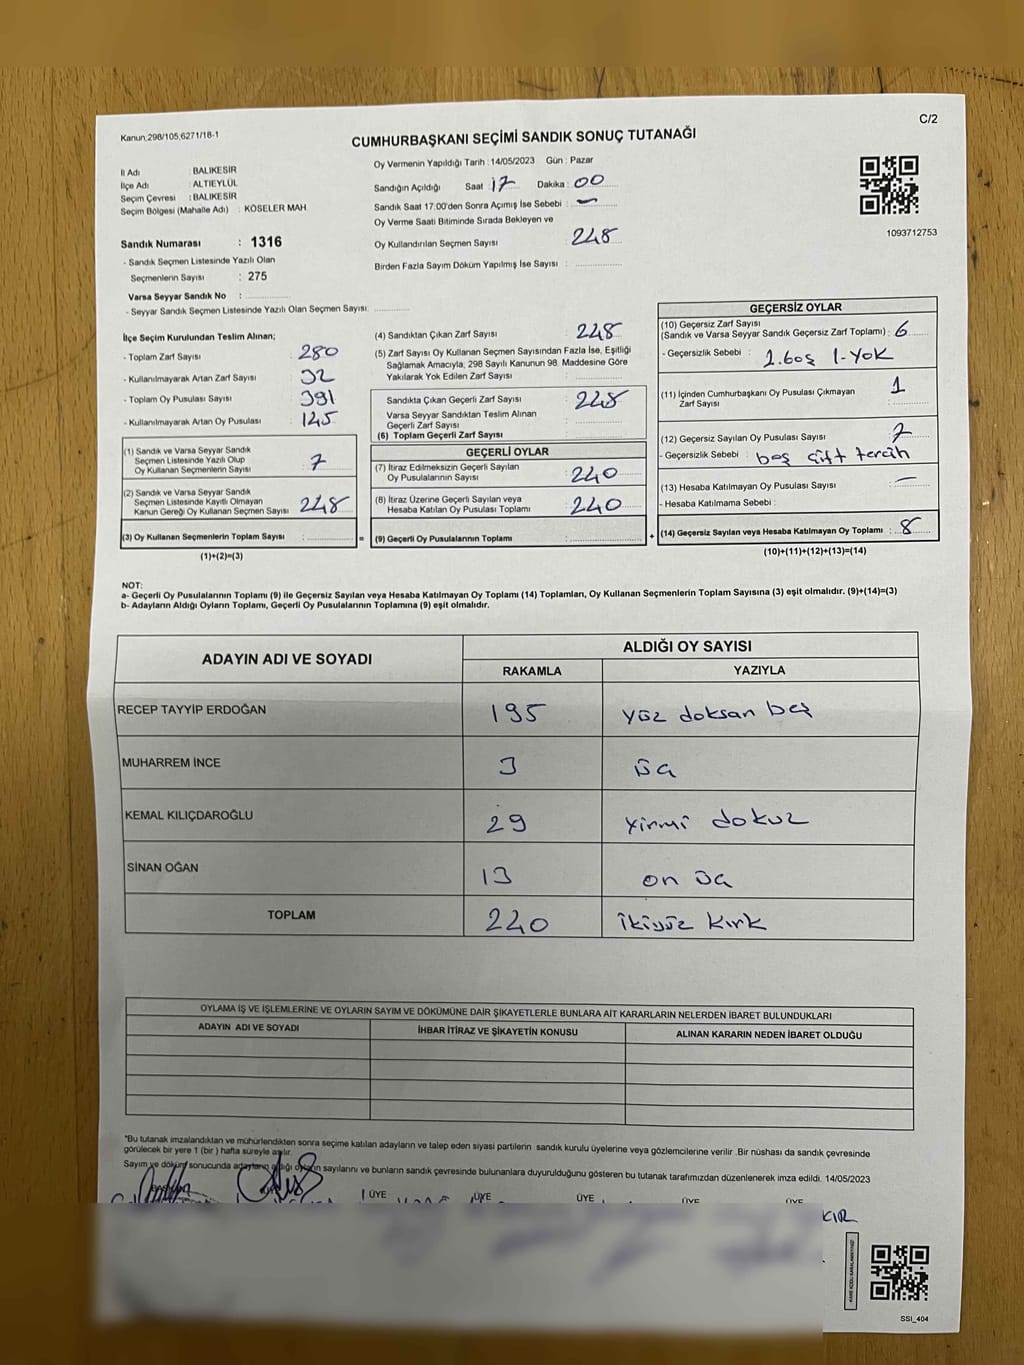 Kanun,298/105,6271/18-1
C/2
CUMHURBAŞKANI SEÇİMİ SANDIK SONUÇ TUTANAĞI
İl Adı : BALIKESİR
İlçe Adı : ALTIEYLÜL
Seçim Çevresi : BALIKESİR
Seçim Bölgesi (Mahalle Adı) : KÖSELER MAH.
Sandık Numarası : 1316
- Sandık Seçmen Listesinde Yazılı Olan
Seçmenlerin Sayısı : 275
Varsa Seyyar Sandık No :
- Seyyar Sandık Seçmen Listesinde Yazılı Olan Seçmen Sayısı:
Oy Vermenin Yapıldığı Tarih : 14/05/2023 Gün : Pazar
Sandığın Açıldığı Saat : 17 Dakika : 00
Sandık Saat 17.00'den Sonra Açımış İse Sebebi : -
Oy Verme Saati Bitiminde Sırada Bekleyen ve
Oy Kullandırılan Seçmen Sayısı : 248
Birden Fazla Sayım Döküm Yapılmış İse Sayısı :
1093712753
İlçe Seçim Kurulundan Teslim Alınan;
- Toplam Zarf Sayısı : 280
- Kullanılmayarak Artan Zarf Sayısı : 32
- Toplam Oy Pusulası Sayısı : 391
- Kullanılmayarak Artan Oy Pusulası : 145
(1) Sandık ve Varsa Seyyar Sandık
Seçmen Listesinde Yazılı Olup
Oy Kullanan Seçmenlerin Sayısı : 7
(2) Sandık ve Varsa Seyyar Sandık
Seçmen Listesinde Kayıtlı Olmayan
Kanun Gereği Oy Kullanan Seçmen Sayısı : 248
(3) Oy Kullanan Seçmenlerin Toplam Sayısı :
(1)+(2)=(3)
(4) Sandıktan Çıkan Zarf Sayısı : 248
(5) Zarf Sayısı Oy Kullanan Seçmen Sayısından Fazla İse, Eşitliği
Sağlamak Amacıyla, 298 Sayılı Kanunun 98. Maddesine Göre
Yakılarak Yok Edilen Zarf Sayısı :
Sandıkta Çıkan Geçerli Zarf Sayısı : 248
Varsa Seyyar Sandıktan Teslim Alınan
Geçerli Zarf Sayısı :
(6) Toplam Geçerli Zarf Sayısı :
GEÇERLİ OYLAR
(7) İtiraz Edilmeksizin Geçerli Sayılan
Oy Pusulalarının Sayısı : 240
(8) İtiraz Üzerine Geçerli Sayılan veya
Hesaba Katılan Oy Pusulası Toplamı : 240
= (9) Geçerli Oy Pusulalarının Toplamı :
GEÇERSİZ OYLAR
(10) Geçersiz Zarf Sayısı
(Sandık ve Varsa Seyyar Sandık Geçersiz Zarf Toplamı) : 6
- Geçersizlik Sebebi : 2.boş 1-YOK
(11) İçinden Cumhurbaşkanı Oy Pusulası Çıkmayan
Zarf Sayısı : 1
(12) Geçersiz Sayılan Oy Pusulası Sayısı : 7
- Geçersizlik Sebebi : boş çift tercih
(13) Hesaba Katılmayan Oy Pusulası Sayısı : -
- Hesaba Katılmama Sebebi :
+ (14) Geçersiz Sayılan veya Hesaba Katılmayan Oy Toplamı : 8
(10)+(11)+(12)+(13)=(14)
NOT:
a- Geçerli Oy Pusulalarının Toplamı (9) ile Geçersiz Sayılan veya Hesaba Katılmayan Oy Toplamı (14) Toplamları, Oy Kullanan Seçmenlerin Toplam Sayısına (3) eşit olmalıdır. (9)+(14)=(3)
b- Adayların Aldığı Oyların Toplamı, Geçerli Oy Pusulalarının Toplamına (9) eşit olmalıdır.
ADAYIN ADI VE SOYADI
ALDIĞI OY SAYISI
RAKAMLA YAZIYLA
RECEP TAYYİP ERDOĞAN 195 yüz doksan beş
MUHARREM İNCE 3 üç
KEMAL KILIÇDAROĞLU 29 yirmi dokuz
SİNAN OĞAN 13 on üç
TOPLAM 240 ikiyüz kırk
OYLAMA İŞ VE İŞLEMLERİNE VE OYLARIN SAYIM VE DÖKÜMÜNE DAİR ŞİKAYETLERLE BUNLARA AİT KARARLARIN NELERDEN İBARET BULUNDUKLARI
ADAYIN ADI VE SOYADI İHBAR İTİRAZ VE ŞİKAYETİN KONUSU ALINAN KARARIN NEDEN İBARET OLDUĞU
*Bu tutanak imzalandıktan ve mühürlendikten sonra seçime katılan adayların ve talep eden siyasi partilerin sandık kurulu üyelerine veya gözlemcilerine verilir .Bir nüshası da sandık çevresinde
görülecek bir yere 1 (bir ) hafta süreyle asılır.
Sayım ve döküm sonucunda adayların aldığı oyların sayılarını ve bunların sandık çevresinde bulunanlara duyurulduğunu gösteren bu tutanak tarafımızdan düzenlenerek imza edildi. 14/05/2023
ÜYE ÜYE ÜYE ÜYE ÜYE
SSI_404